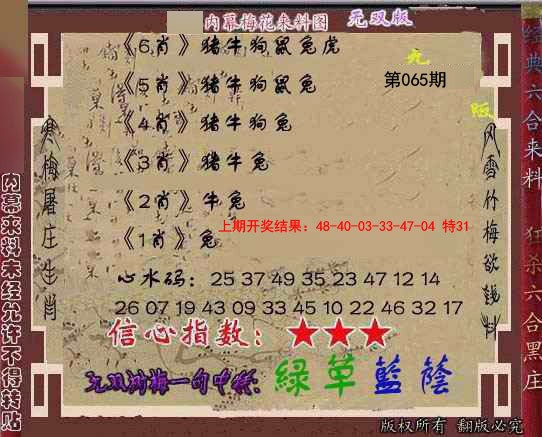 内幕梅花来料图 无双版
《6肖》猪牛狗鼠兔虎
九
《5肖》猪牛狗鼠兔
第065期
版
《4肖》猪牛狗兔
《3肖》猪牛兔
《2肖》牛兔
上期开奖结果：48-40-03-33-47-04 特31
《1肖》兔
心水码：25 37 49 35 23 47 12 14
26 07 19 43 09 33 45 10 22 46 32 17
信心指数：★★★
无双浏梅一句中特：绿草蓝荫
版权所有 翻版必究
寒梅屠庄生肖
风雪竹梅欲钱料
内幕来料未经允许不得转贴
经典六合来料 狂杀六合黑庄